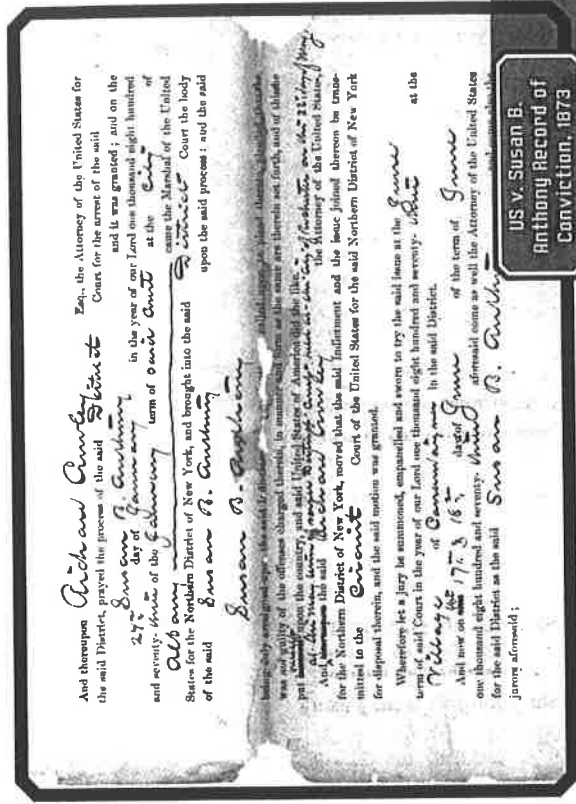 And thereupon Richard Crowley Esq., the Attorney of the United States for
the said District, prayed the process of the said District Court for the arrest of the said
Susan B. Anthony and it was granted; and on the
27th day of January in the year of our Lord one thousand eight hundred
and seventy- three of the January term of said Court at the City of
Albany came the Marshal of the United
States for the Northern District of New York, and brought into the said District Court the body
of the said Susan B. Anthony upon the said process; and the said
Susan B. Anthony
being duly arraigned upon the said
was not guilty of the offenses charged therein, in manner and form as the same are therein set forth, and of this
put upon the country, and said United States of America did the like.
And the said Richard Crowley the Attorney of the United States,
for the Northern District of New York, moved that the said Indictment and the issue joined thereon be trans-
mitted to the Circuit Court of the United States for the said Northern District of New York
for disposal therein, and the said motion was granted.
Wherefore let a jury be summoned, empanelled and sworn to try the said issue at the June
term of said Court in the year of our Lord one thousand eight hundred and seventy- three at the
Village of Canandaigua in the said District.
And now on the 17th & 18th day of June of the term of June
one thousand eight hundred and seventy- three aforesaid come as well the Attorney of the United States
for the said District as the said Susan B. Anthony
jurors aforesaid;
US v. Susan B.
Anthony Record of
Conviction, 1873